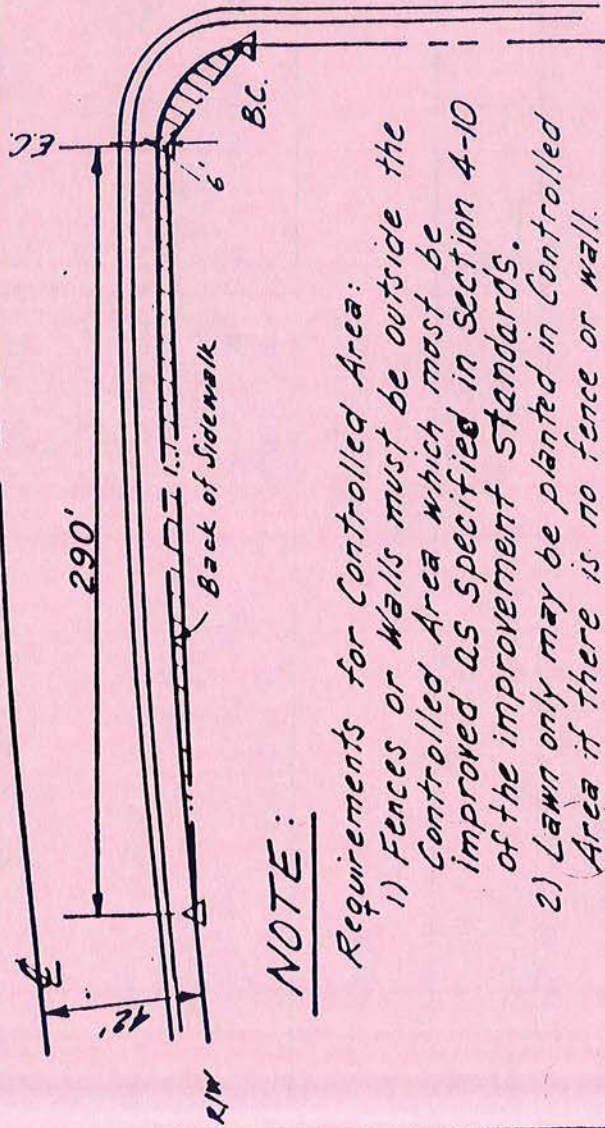 290'
E.C.
42'
R/W
6'
B.C.
Back of Sidewalk
NOTE:
Requirements for Controlled Area:
1) Fences or Walls must be outside the
Controlled Area which most be
improved as specified in section 4-10
of the improvement standards.
2) Lawn only may be planted in Controlled
Area if there is no fence or wall.